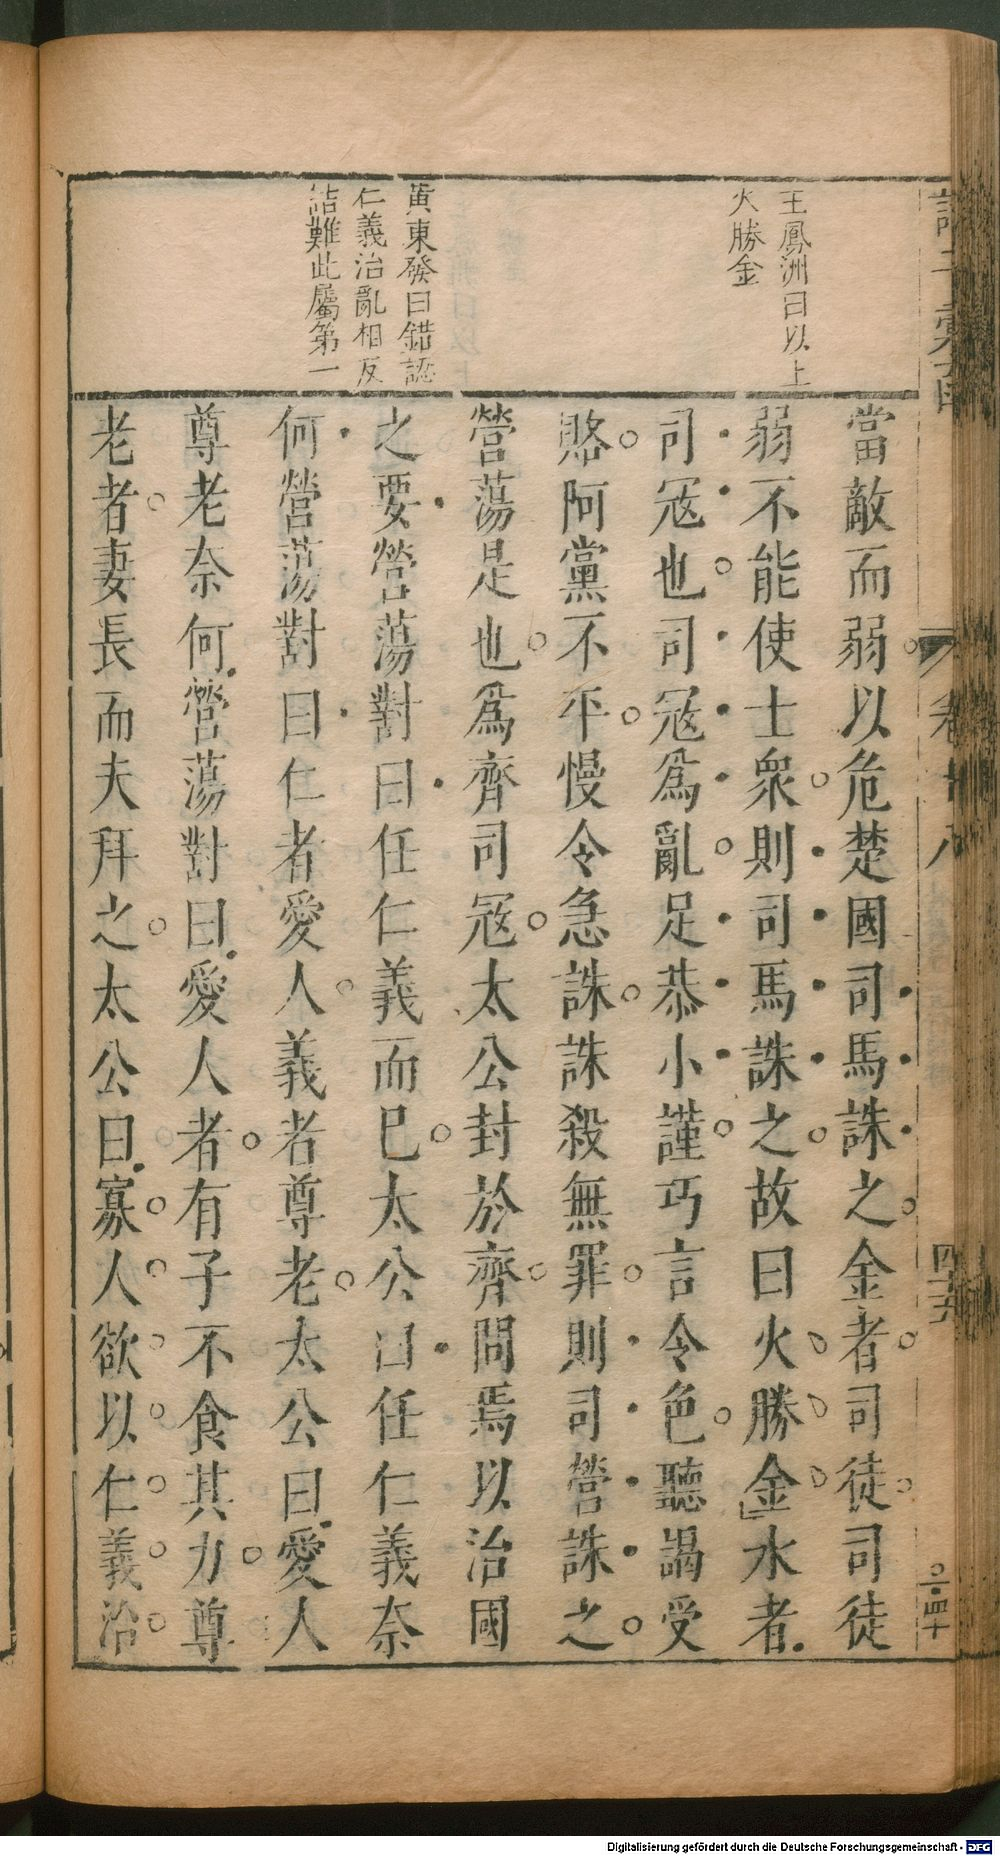 王鳳洲曰以上
火勝金
黃東發曰錯認
仁義治亂相反
詰難此屬第一
當敵而弱以危楚國司馬誅之金者司徒司徒
弱不能使士衆則司馬誅之故曰火勝金水者
司冦也司冦爲亂足恭小謹巧言令色聽謁受
賂阿黨不平慢令急誅誅殺無罪則司營誅之
營蕩是也爲齊司冦太公封於齊問焉以治國
之要營蕩對曰任仁義而已太公曰任仁義奈
何營蕩對曰仁者愛人義者尊老太公曰愛人
尊老奈何營蕩對曰愛人者有子不食其力尊
老者妻長而夫拜之太公曰寡人欲以仁義治
卷十八
四十五
Digitalisierung gefördert durch die Deutsche Forschungsgemeinschaft - DFG